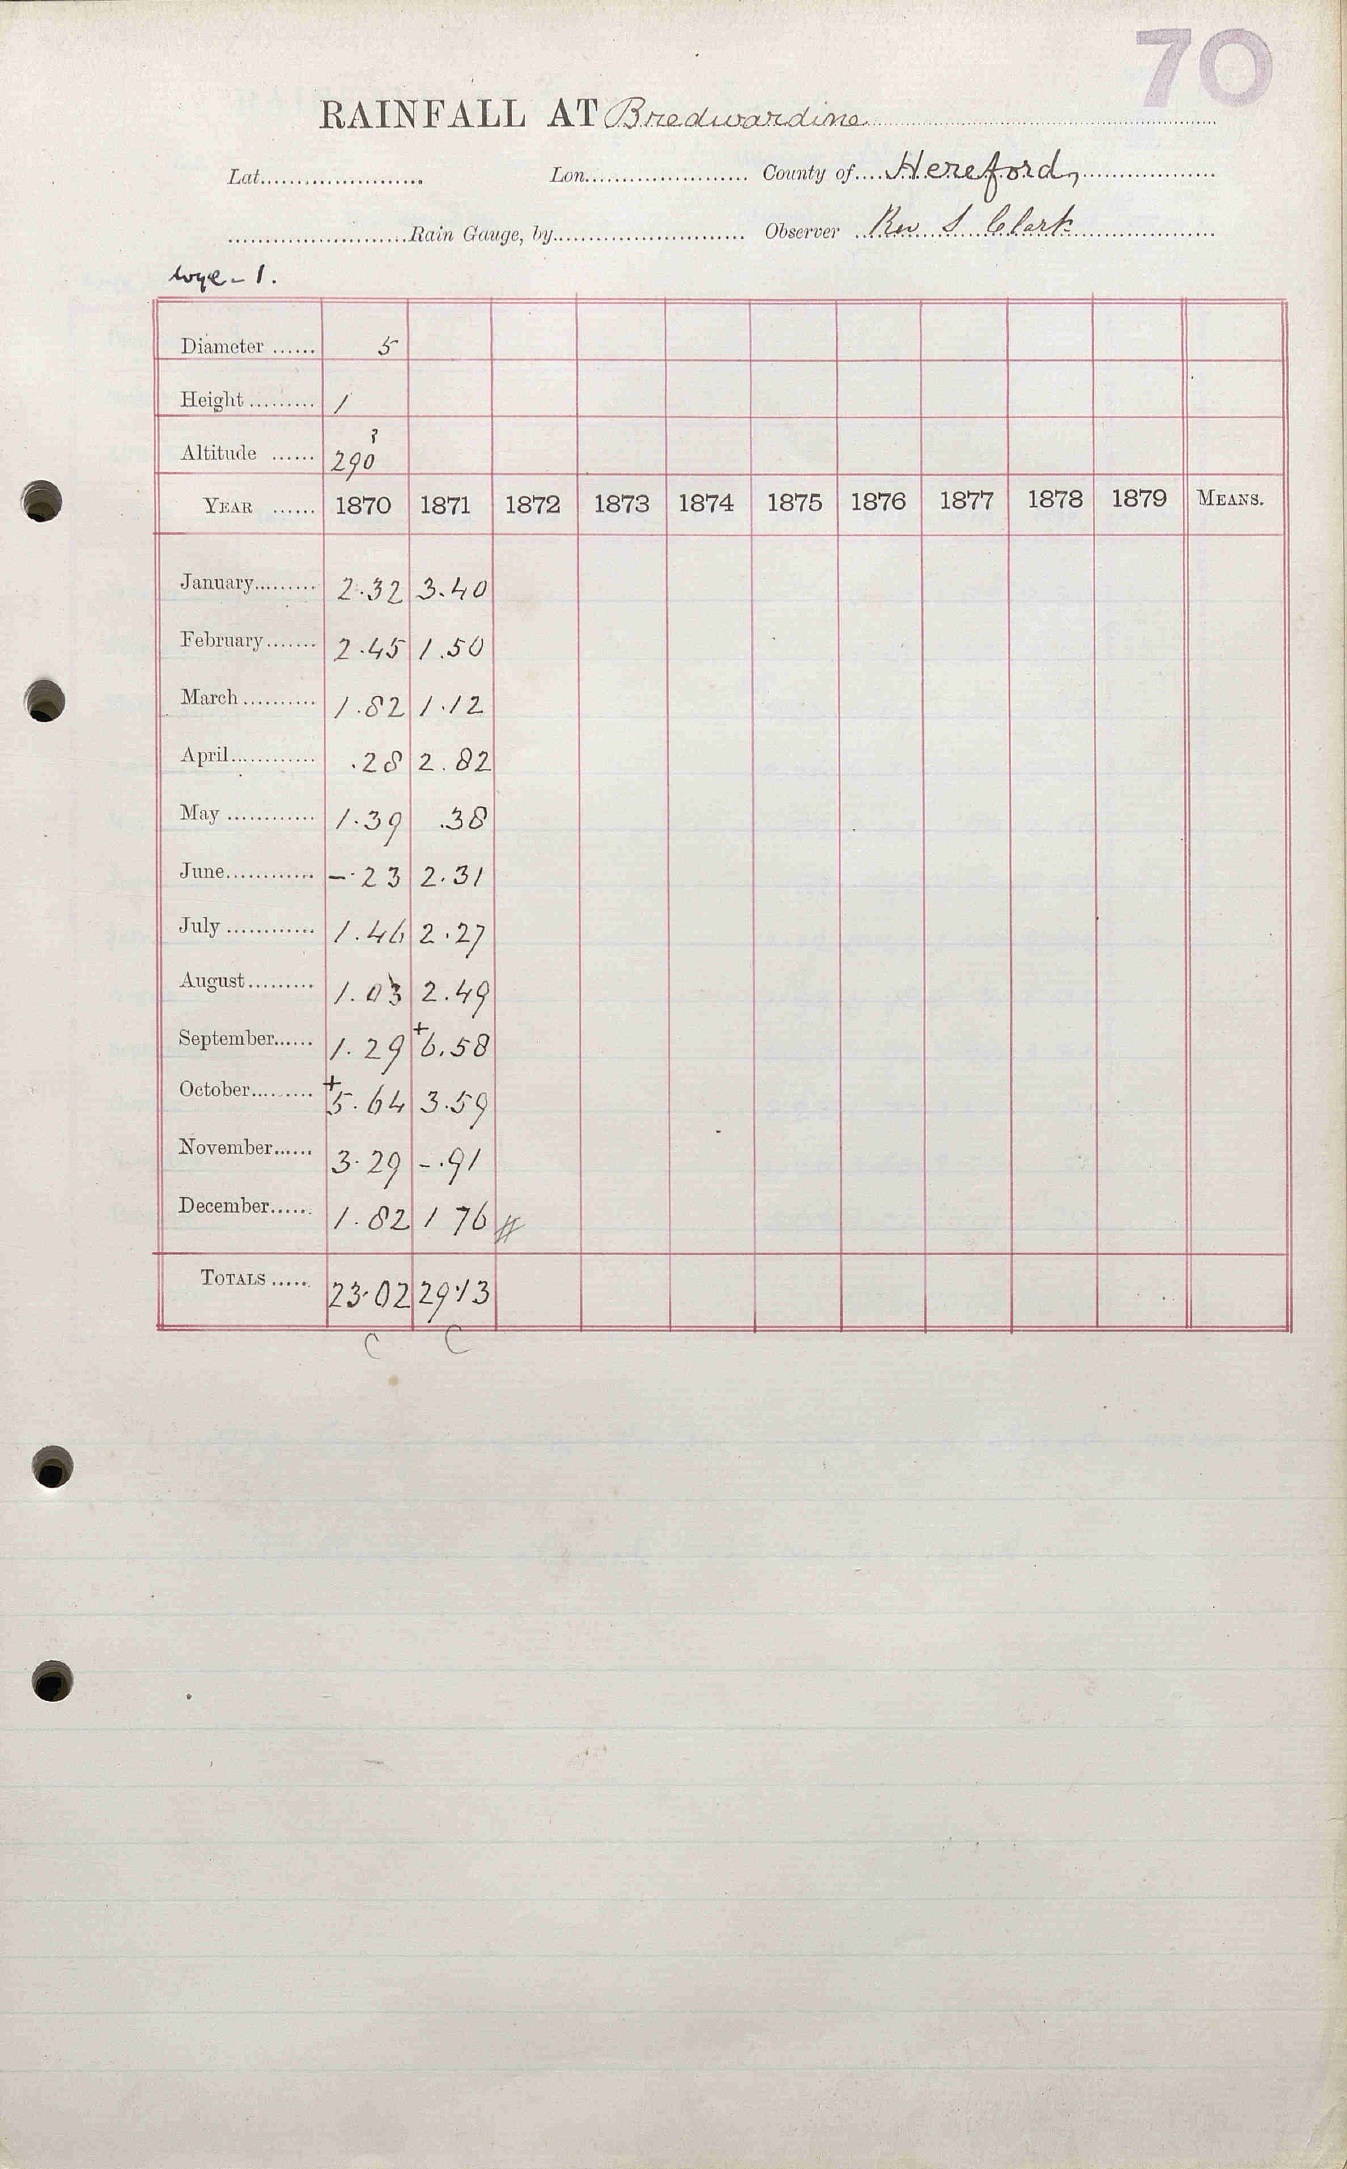 70
RAINFALL AT Bredwardine
Lat. Lon. County of Hereford,
Rain Gauge, by Observer Rev S Clark
Wye - 1.
Diameter ...... 5
Height ......... 1
?
Altitude ...... 290
YEAR ...... 1870 1871 1872 1873 1874 1875 1876 1877 1878 1879 MEANS.
January......... 2.32 3.40
February....... 2.45 1.50
March.......... 1.82 1.12
April............ .28 2.82
May ............ 1.39 .38
June............ -.23 2.31
July ............ 1.46 2.27
August......... 1.03 2.49
September...... 1.29 +6.58
October......... +5.64 3.59
November...... 3.29 -.91
December...... 1.82 1 76 #
TOTALS ..... 23.02 29.13
C C